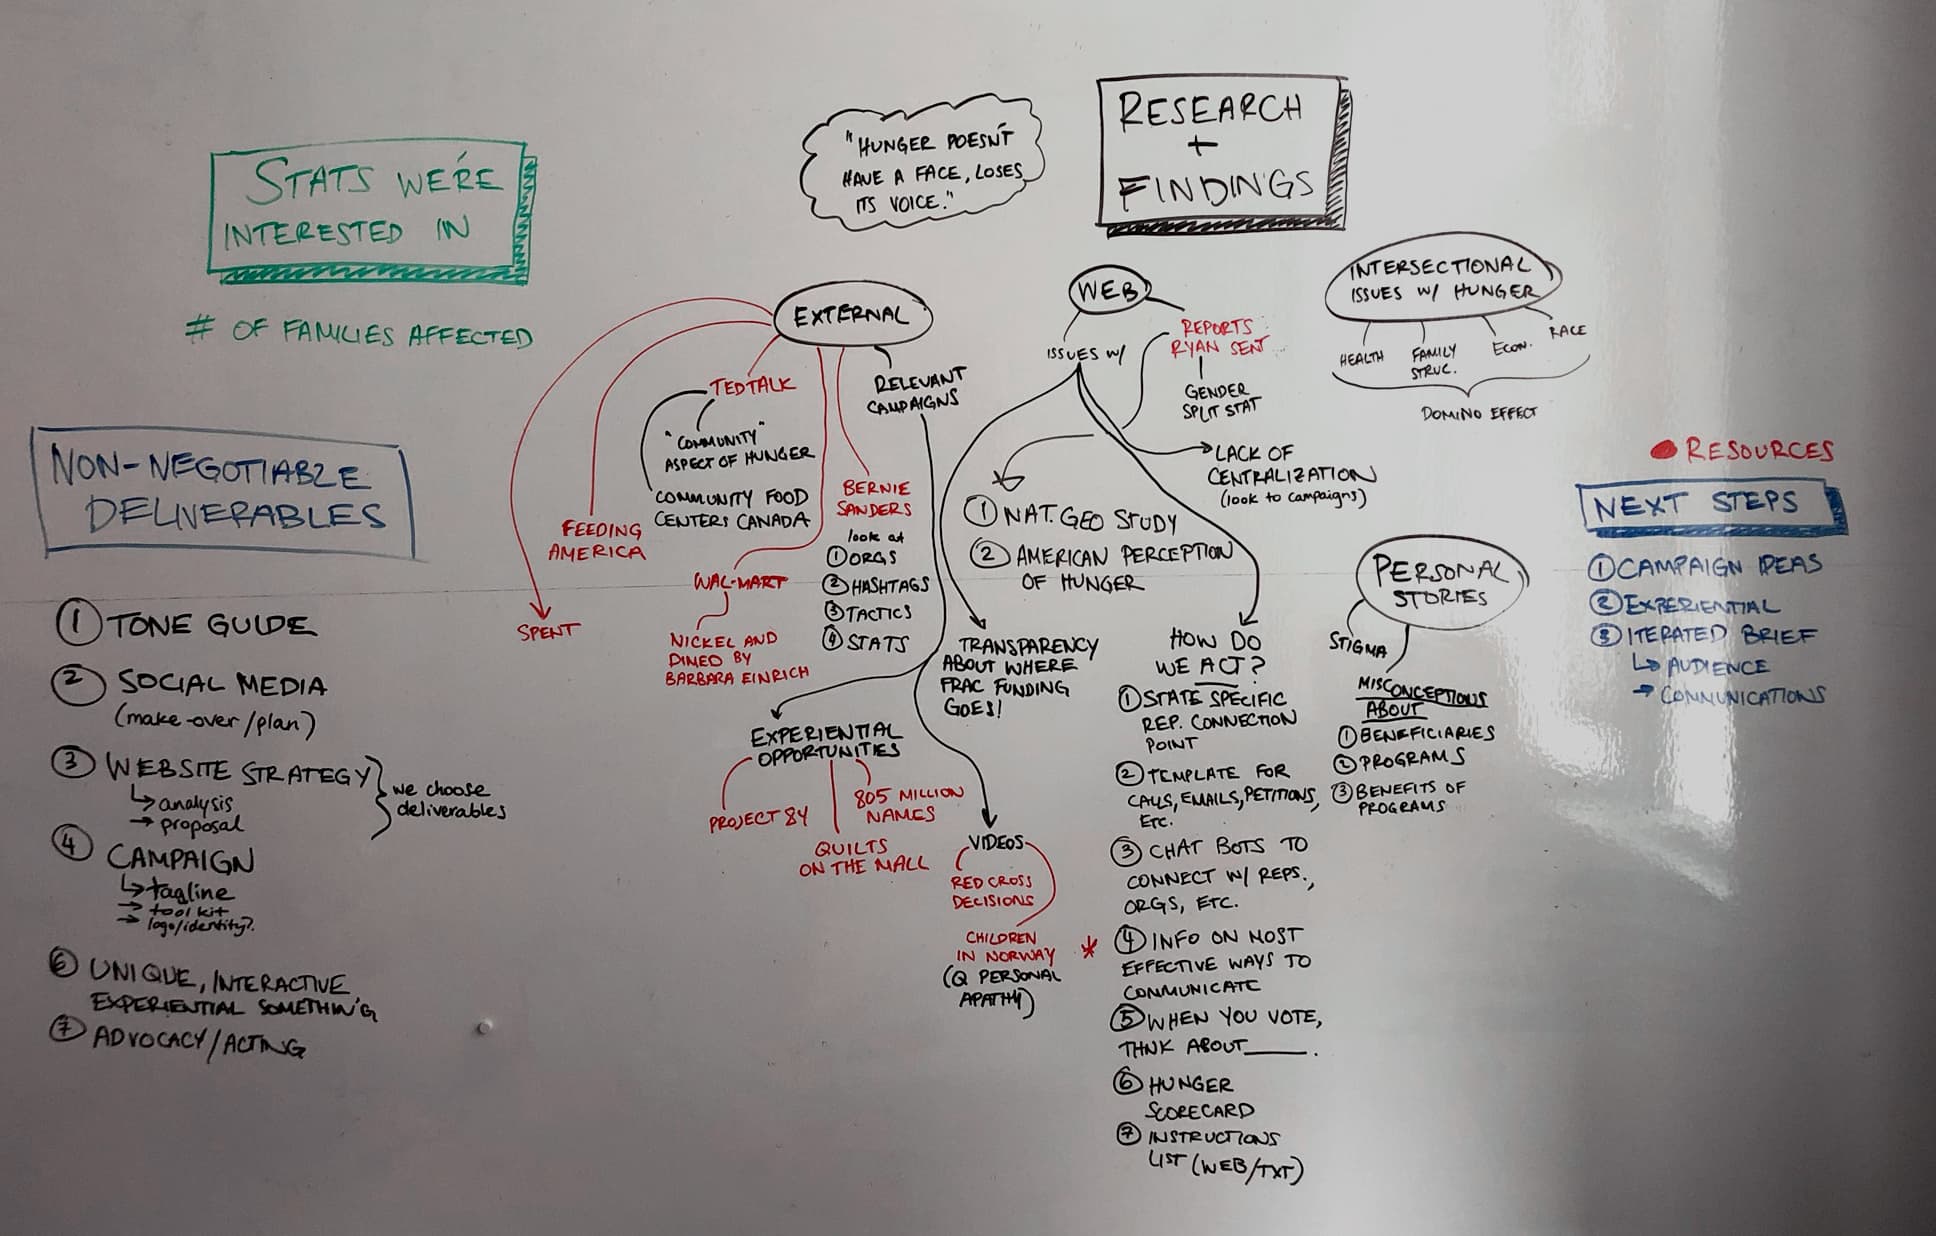 STATS WE'RE
INTERESTED IN
# OF FAMILIES AFFECTED
NON-NEGOTIABLE
DELIVERABLES
① TONE GUIDE
② SOCIAL MEDIA
(make-over/plan)
③ WEBSITE STRATEGY
↳ analysis
→ proposal
we choose
deliverables
④ CAMPAIGN
↳ tagline
→ toolkit
→ logo/identity?
⑥ UNIQUE, INTERACTIVE
EXPERIENTIAL SOMETHING
⑦ ADVOCACY/ACTING
"HUNGER DOESN'T
HAVE A FACE, LOSES
ITS VOICE."
RESEARCH
+
FINDINGS
EXTERNAL
SPENT
FEEDING
AMERICA
TEDTALK
"COMMUNITY"
ASPECT OF HUNGER
COMMUNITY FOOD
CENTERS CANADA
WAL-MART
NICKEL AND
DIMED BY
BARBARA EINRICH
BERNIE
SANDERS
look at
① ORGS
② HASHTAGS
③ TACTICS
④ STATS
RELEVANT
CAMPAIGNS
EXPERIENTIAL
OPPORTUNITIES
PROJECT 84
QUILTS
ON THE MALL
805 MILLION
NAMES
VIDEOS
RED CROSS
DECISIONS
CHILDREN
IN NORWAY
(Q PERSONAL
APATHY)
WEB
ISSUES W/
REPORTS
RYAN SENT
GENDER
SPLIT STAT
① NAT. GEO STUDY
② AMERICAN PERCEPTION
OF HUNGER
LACK OF
CENTRALIZATION
(look to campaigns)
TRANSPARENCY
ABOUT WHERE
FRAC FUNDING
GOES!
HOW DO
WE ACT?
① STATE SPECIFIC
REP. CONNECTION
POINT
② TEMPLATE FOR
CALLS, EMAILS, PETITIONS,
ETC.
③ CHAT BOTS TO
CONNECT W/ REPS.,
ORGS, ETC.
* ④ INFO ON MOST
EFFECTIVE WAYS TO
COMMUNICATE
⑤ WHEN YOU VOTE,
THNK ABOUT_____.
⑥ HUNGER
SCORECARD
⑦ INSTRUCTIONS
LIST (WEB/TXT)
INTERSECTIONAL
ISSUES W/ HUNGER
HEALTH
FAMILY
STRUC.
ECON.
RACE
DOMINO EFFECT
PERSONAL
STORIES
STIGMA
MISCONCEPTIONS
ABOUT
① BENEFICIARIES
② PROGRAMS
③ BENEFITS OF
PROGRAMS
● RESOURCES
NEXT STEPS
① CAMPAIGN IDEAS
② EXPERIENTIAL
③ ITERATED BRIEF
↳ AUDIENCE
→ COMMUNICATIONS